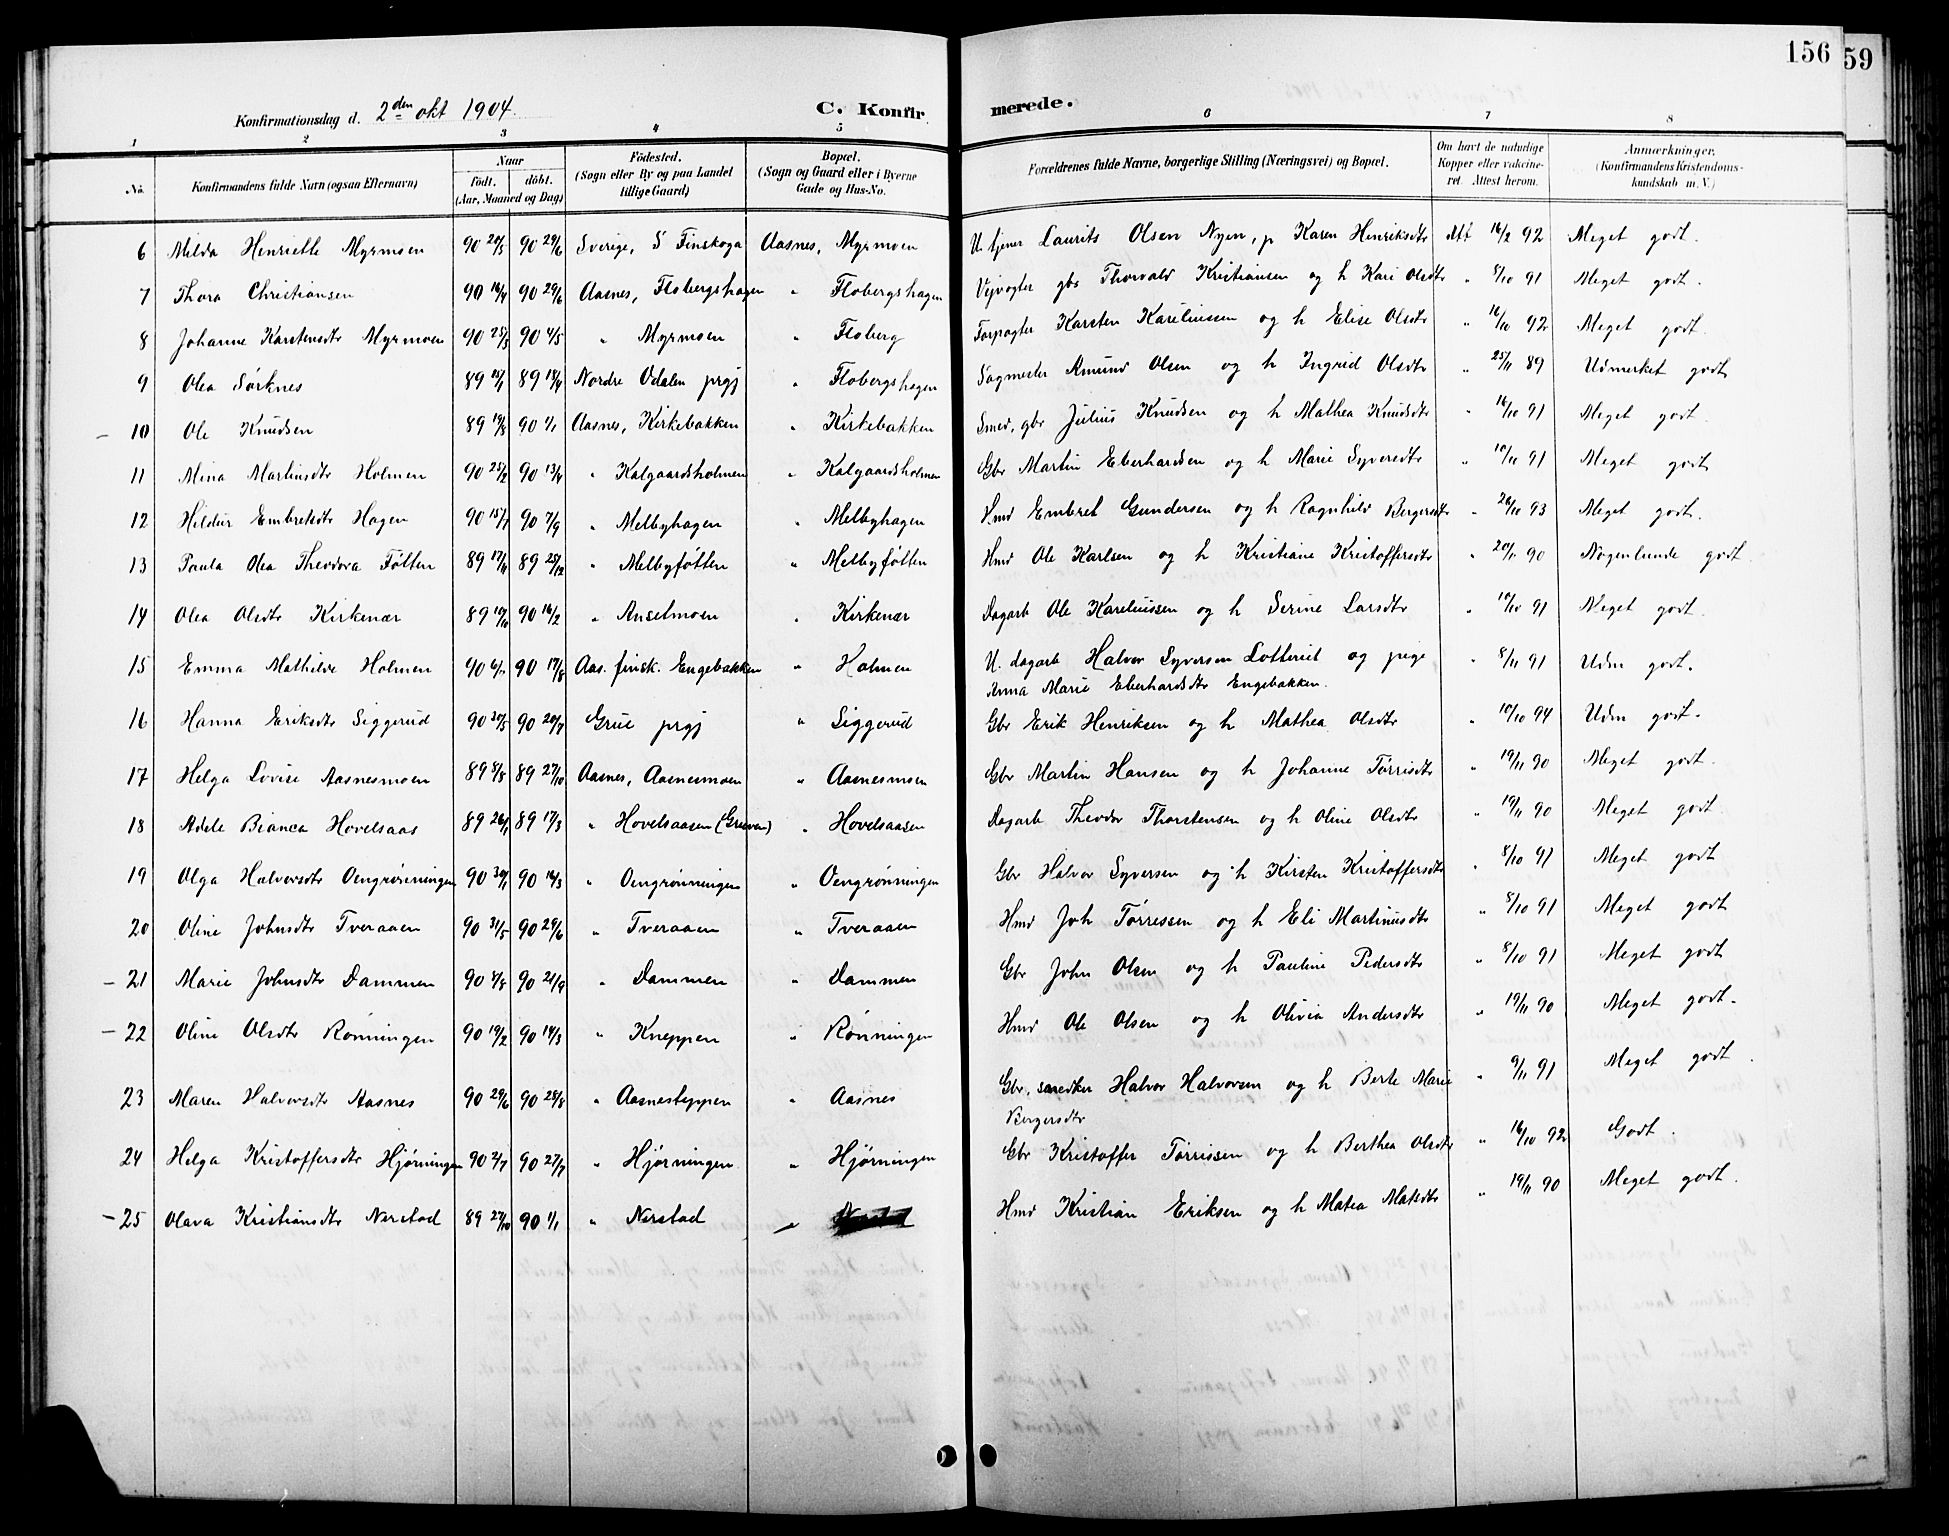 156 59
Konfirmationsdag d. 2den okt 1904. C. Konfirmerede.
1 2 3 4 5 6 7 8
No. Konfirmandens fulde Navn (ogsaa Efternavn) Naar födt. döbt. (Aar, Maaned og Dag) Födested. (Sogn eller By og paa Landet tillige Gaard) Bopæl. (Sogn og Gaard eller i Byerne Gade og Hus-No. Forældrenes fulde Navne, borgerlige Stilling (Næringsvei) og Bopæl. Om havt de naturlige Kopper eller vakcineret. Attest herom. Anmærkninger. (Konfirmandens Kristendomskundskab m. V.)
6 Milda Henriette Myrmoen 90 24/5 90 29/6 Sverige, S Finskoga Aasnes, Myrmoen U. tjener Laurits Olsen Nyen, p Karen Henriksdtr Att 16/2 92 Meget godt.
7 Thora Christiansen 90 16/4 90 29/6 Aasnes, Flobergshagen " Flobergshagen Veivogter gbs Thorvald Kristiansen og h Kari Olsdtr " 8/10 91 Meget godt.
8 Johanne Karstensdtr Myrmoen 90 25/3 90 4/5 " Myrmoen " Floberg Forpagter Karsten Kareliussen og h Elise Olsdtr " 16/10 92 Meget godt.
9 Olea Sörknes 89 89 18/4 Nordre Odalen prgj " Flobergshagen Sagmester Amund Olsen og h Ingrid Olsdtr " 25/11 89 Udmerket godt
10 Ole Knudsen 89 19/8 90 1/1 Aasnes, Kirkebakken " Kirkebakken Smed, gbr Julius Knudsen og h Mathea Knudsdtr " 16/10 91 Meget godt.
11 Mina Martinsdtr Holmen 90 25/2 90 13/4 " Kalgaardsholmen " Kalgaardsholmen Gbr Martin Eberhardsen og h Marie Syversdtr " 10/11 91 Meget godt
12 Hildur Embretsdtr Hagen 90 15/7 90 7/9 " Melbyhagen " Melbyhagen Hmd Embret Gundersen og h Ragnhild Bergersdtr " 26/10 93 Meget godt.
13 Paula Olea Theodora Fötten 89 17/11 89 25/12 " Melbyfötten " Melbyfötten Hmd Ole Karlsen og h Kristiane Kristoffersdtr " 20/11 90 Nogenlunde godt.
14 Olea Olsdtr Kirkenær 89 19/10 90 16/2 " Anselmoen " Kirkenær Dagarb Ole Kareliussen og h Serine Larsdtr " 10/10 91 Meget godt.
15 Emma Mathilde Holmen 90 90 17/8 Aas. finsk. Engebakken " Holmen U. dagarb Halvor Syversen Lotteriet og pige " 8/11 91 Udm godt.
Anna Marie Eberhardsdtr Engebakken.
16 Hanna Eriksdtr Siggerud 90 30/5 90 20/7 Grue prgj " Siggerud Gbr Erik Henriksen og h Mathea Olsdtr " 10/10 94 Udm godt.
17 Helga Lovise Aasnesmoen 89 8/8 89 27/10 Aasnes, Aasnesmoen " Aasnesmoen Gbr Martin Hansen og h Johanne Törrisdtr " 19/11 90 Meget godt.
18 Adele Bianca Hovelsaas 89 26/1 89 17/3 " Hovelsaasen (Gruven) " Hovelsaasen Dagarb Theodor Thorstensen og h Oline Olsdtr " 19/11 90 Meget godt
19 Olga Halvorsdtr Oengrönningen 90 30/1 90 16/3 " Oengrönningen " Oengrönningen Gbr Halvor Syversen og h Kirsten Kristoffersdtr " 8/10 91 Meget godt
20 Oline Johnsdtr Tveraaen 90 31/5 90 29/6 " Tveraaen " Tveraaen Hmd Joh Törressen og h Eli Martinusdtr " 8/10 91 Meget godt
21 Marie Johnsdtr Dammen 90 8/8 90 21/9 " Dammen " Dammen Gbr John Olsen og h Pauline Pedersdtr " 8/10 91 Meget godt
22 Oline Olsdtr Rönningen 90 19/2 90 14/3 " Kneppen " Rönningen Hmd Ole Olsen og h Olivia Andersdtr " 19/11 90 Meget godt.
23 Maren Halvorsdtr Aasnes 90 29/6 90 28/8 " Aasnesteppen " Aasnes Gbr, snedker Halvor Halvorsen og h Berte Marie " 9/11 91 Meget godt.
Bergersdtr
24 Helga Kristoffersdtr Hjörningen 90 2/7 90 27/7 " Hjörningen " Hjörningen Gbr Kristoffer Törrissen og h Berthea Olsdtr " 16/10 92 Godt.
25 Olava Kristiansdtr Nerstad 89 27/10 90 1/1 " Nerstad " Hmd Kristian Eriksen og h Matea Matsdtr " 19/11 90 Meget godt.